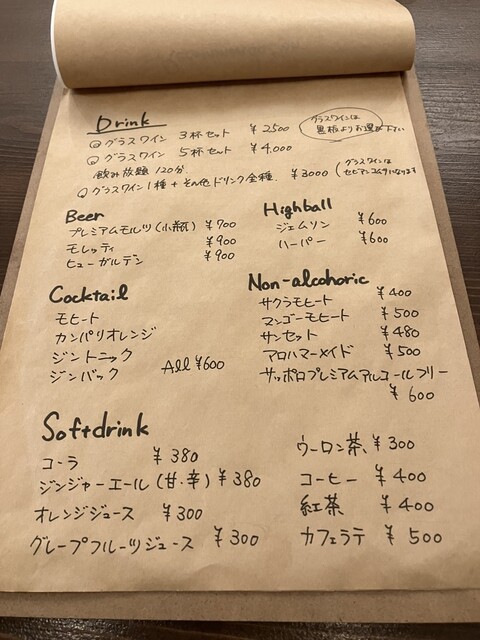 Drink
グラスワインは
黒板よりお選び下さい
グラスワイン 3杯セット ¥2500
グラスワイン 5杯セット ¥4,000
飲み放題 120分
グラスワイン1種+その他ドリンク全種. ¥3000 (グラスワインは
になります
Beer
プレミアムモルツ(小瓶) ¥700
モレッティ ¥900
ヒューガルデン ¥900
Highball
ジェムソン ¥600
ハーパー ¥600
Cocktail
モヒート
カンパリオレンジ
ジントニック
ジンバック All ¥600
Non-alcohoric
サクラモヒート ¥400
マンゴーモヒート ¥500
サンセット ¥480
アロハマーメイド ¥500
サッポロプレミアムアルコールフリー
¥600
Softdrink
コーラ ¥380
ジンジャーエール(甘・辛) ¥380
オレンジジュース ¥300
グレープフルーツジュース ¥300
ウーロン茶、¥300
コーヒー ¥400
紅茶 ¥400
カフェラテ ¥500